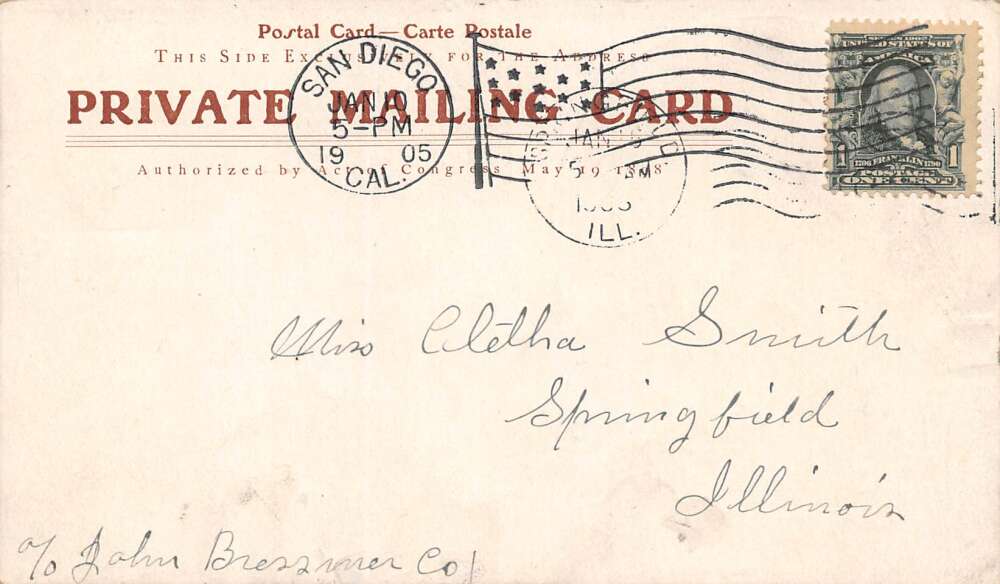 Postal Card—Carte Postale
THIS SIDE EXCLUSIVELY FOR THE ADDRESS
PRIVATE MAILING CARD
Authorized by Act of Congress May 19 1898
SAN DIEGO
JAN 10
5-PM
19 05
CAL.
JAN
5 PM
ILL.
SERIES 1902
UNITED STATES OF
AMERICA
1 1706 FRANKLIN 1790 1
POSTAGE
ONE CENT
Miss Cletha Smith
Springfield
Illinois
c/o John Bressmer Co